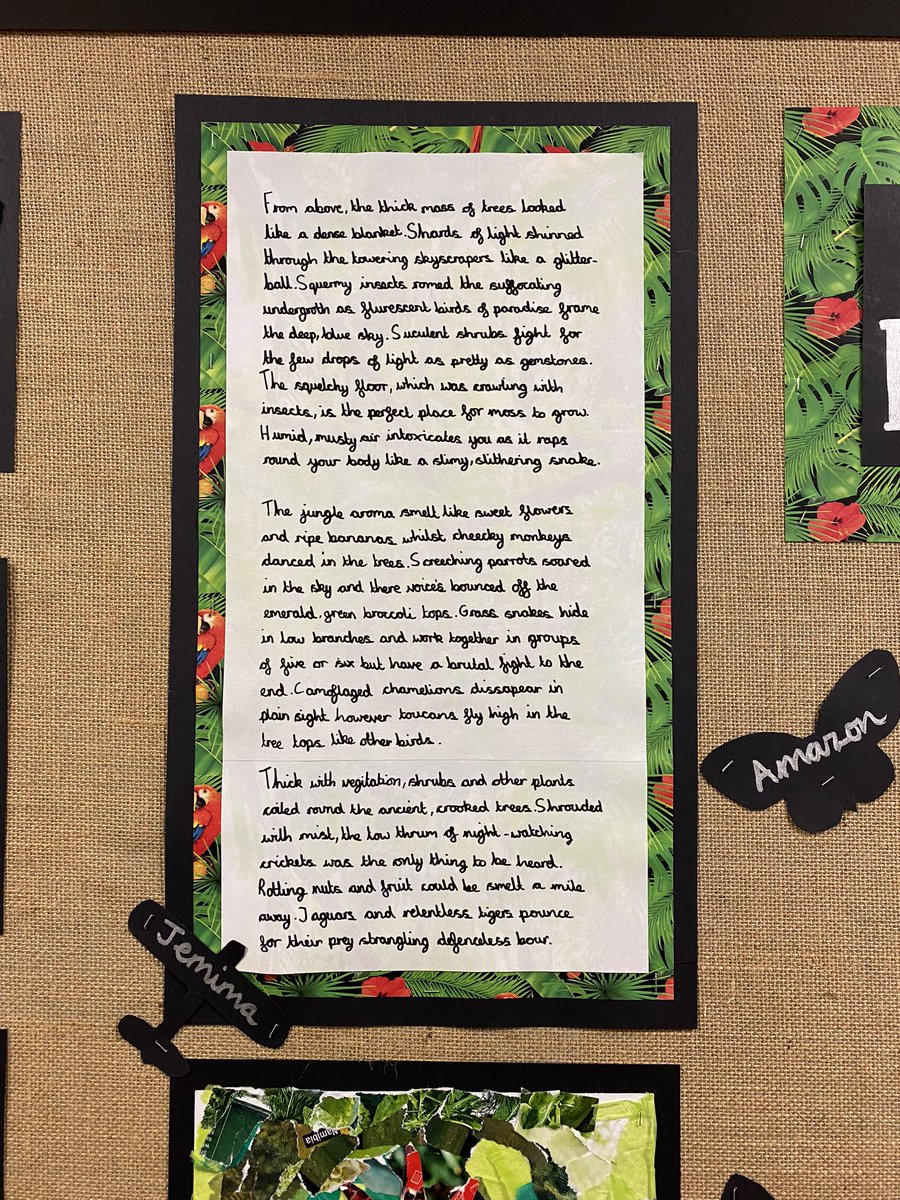 From above, the thick mass of trees looked
like a dense blanket. Shards of light shinned
through the towering skyscrapers like a glitter-
ball. Squermy insects romed the suffocating
undergroth as flurescent birds of paradise frame
the deep, blue sky. Suculent shrubs fight for
the few drops of light as pretty as gemstones.
The squelchy floor, which was crawling with
insects, is the perfect place for moss to grow.
Humid, musty air intoxicates you as it raps
round your body like a slimy, slithering snake.
The jungle aroma smelt like sweet flowers
and ripe bananas whilst cheecky monkeys
danced in the trees. Screeching parrots soared
in the sky and there voice's bounced off the
emerald, green broccoli tops. Grass snakes hide
in low branches and work together in groups
of five or six but have a brutal fight to the
end. Camoflaged chamelions dissapear in
plain sight however toucans fly high in the
tree tops like other birds.
Thick with vegitation, shrubs and other plants
coiled round the ancient, crooked trees. Shrouded
with mist, the low thrum of night-watching
crickets was the only thing to be heard.
Rotting nuts and fruit could be smelt a mile
away. Jaguars and relentless tigers pounce
for their prey strangling defenceless bour.
Amazon
Jemima
Namibia